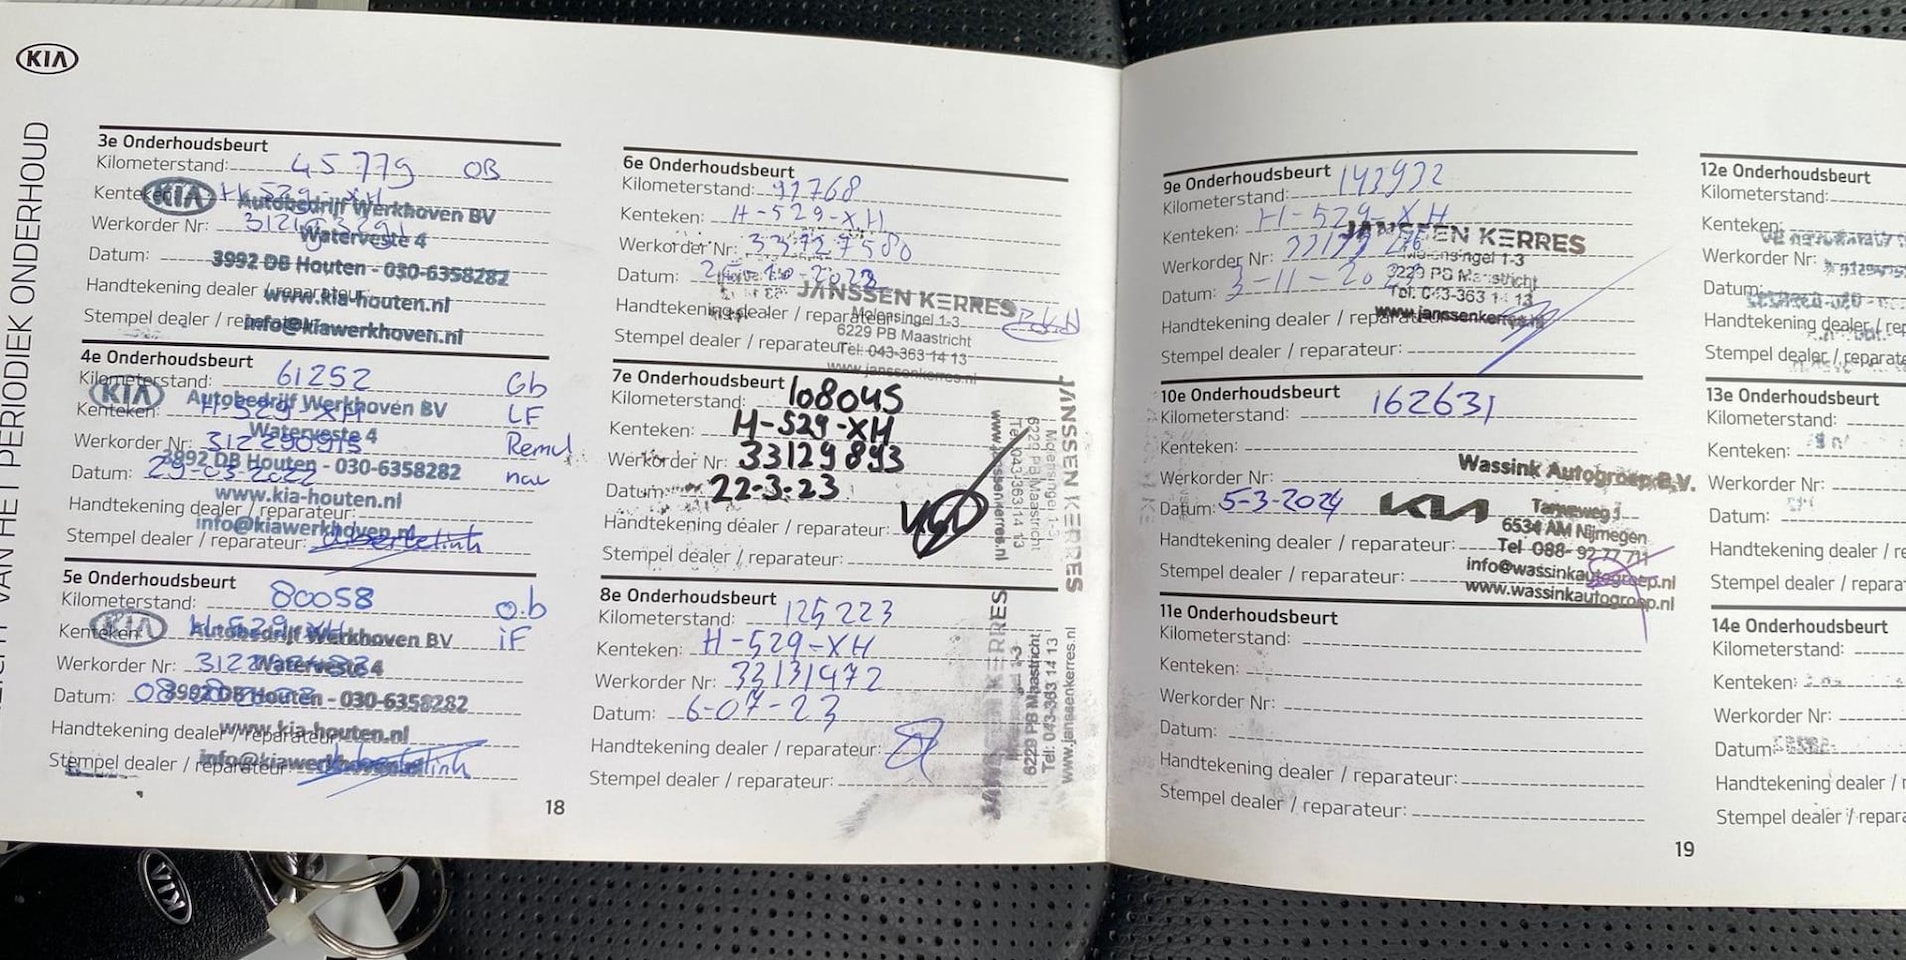 KIA
VAN HET PERIODIEK ONDERHOUD
3e Onderhoudsbeurt
Kilometerstand: 45779 OB
Kenteken: H-529-XH
KIA Autobedrijf Werkhoven BV
Werkorder Nr:
Waterveste 4
Datum:
3992 DB Houten - 030-6358282
Handtekening dealer / reparateur:
www.kia-houten.nl
Stempel dealer / reparateur:
info@kiawerkhoven.nl
4e Onderhoudsbeurt
Kilometerstand: 61252 Gb
KIA Autobedrijf Werkhoven BV
Kenteken: H-529-XH LF
Waterveste 4
Werkorder Nr: Remvl
3992 DB Houten - 030-6358282
Datum: 29-03-2022 nav
www.kia-houten.nl
Handtekening dealer / reparateur:
info@kiawerkhoven.nl
Stempel dealer / reparateur:
5e Onderhoudsbeurt
Kilometerstand: 80058 o.b
Kenteken: H-529-XH iF
KIA Autobedrijf Werkhoven BV
Werkorder Nr:
Waterveste 4
Datum:
3992 DB Houten - 030-6358282
Handtekening dealer / reparateur:
www.kia-houten.nl
Stempel dealer / reparateur:
info@kiawerkhoven.nl
6e Onderhoudsbeurt
Kilometerstand: 92768
Kenteken: H-529-XH
Werkorder Nr:
Datum:
JANSSEN KERRES
Handtekening dealer / reparateur:
Molensingel 1-3
6229 PB Maastricht
Stempel dealer / reparateur:
Tel: 043-363 14 13
www.janssenkerres.nl
7e Onderhoudsbeurt
Kilometerstand: 108045
Kenteken: H-529-XH
Werkorder Nr: 33129893
Datum: 22-3-23
Handtekening dealer / reparateur:
Stempel dealer / reparateur:
JANSSEN KERRES
Molensingel 1-3
6229 PB Maastricht
Tel: 043-363 14 13
www.janssenkerres.nl
8e Onderhoudsbeurt
Kilometerstand: 125223
Kenteken: H-529-XH
Werkorder Nr: 33131472
Datum: 6-07-23
Handtekening dealer / reparateur:
Stempel dealer / reparateur:
JANSSEN KERRES
6229 PB Maastricht
Tel: 043-363 14 13
www.janssenkerres.nl
18
9e Onderhoudsbeurt
Kilometerstand: 143932
Kenteken: H-529-XH
JANSSEN KERRES
Werkorder Nr:
Molensingel 1-3
6229 PB Maastricht
Datum: 3-11-2023
Tel: 043-363 14 13
Handtekening dealer / reparateur:
www.janssenkerres.nl
Stempel dealer / reparateur:
10e Onderhoudsbeurt
Kilometerstand: 162631
Kenteken:
Werkorder Nr:
Wassink Autogroep B.V.
Datum: 5-3-2024
KIA
6534 AM Nijmegen
Handtekening dealer / reparateur:
Tel 088- 92 77 711
Stempel dealer / reparateur:
info@wassinkautogroep.nl
www.wassinkautogroep.nl
11e Onderhoudsbeurt
Kilometerstand:
Kenteken:
Werkorder Nr:
Datum:
Handtekening dealer / reparateur:
Stempel dealer / reparateur:
12e Onderhoudsbeurt
Kilometerstand:
Kenteken:
Werkorder Nr:
Datum:
Handtekening dealer / rep
Stempel dealer / reparate
13e Onderhoudsbeurt
Kilometerstand:
Kenteken:
Werkorder Nr:
Datum:
Handtekening dealer / re
Stempel dealer / repara
14e Onderhoudsbeurt
Kilometerstand:
Kenteken:
Werkorder Nr:
Datum:
Handtekening dealer / r
Stempel dealer / repar
19
KIA